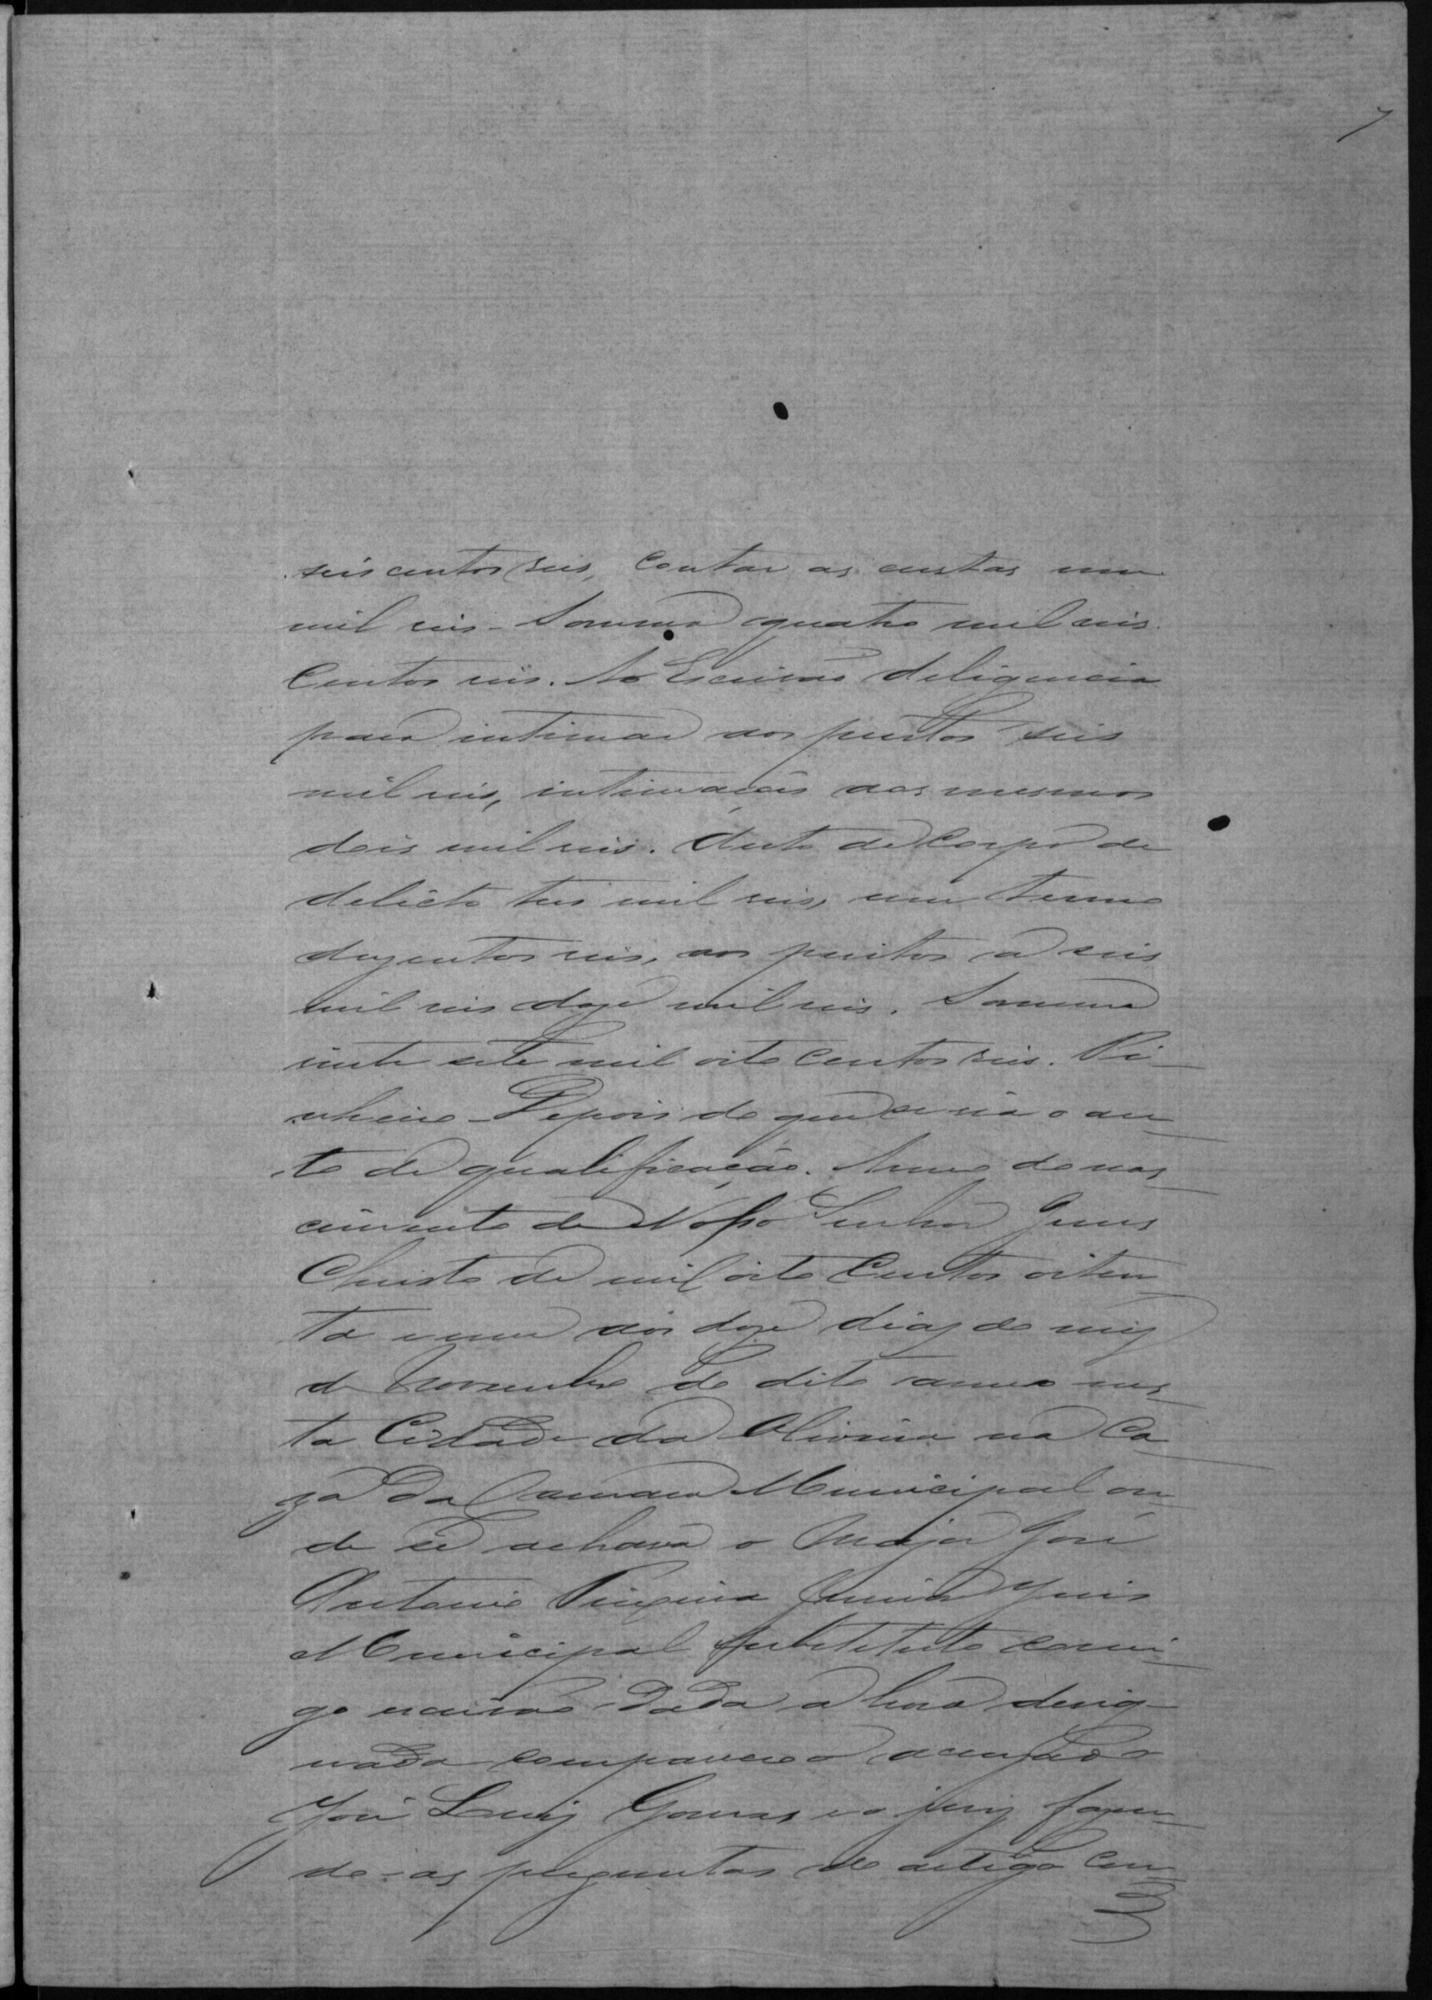 7
seiscentos reis, contar as custas um
mil reis - Somma quatro mil seis
Centos reis. Ao Escrivão deligencia
para intimar aos peritos seis
mil reis, intimação aos mesmos
dois mil reis. Auto de Corpo de
delicto tres mil reis, um termo
duzentos reis, aos peritos a seis
mil reis doze mil reis. Somma
vinte sete mil oito centos reis. Pi-
nheiro - Depois do que se via o au-
to de qualificação. Anno do nas-
cimento de Nosso Senhor Jesus
Christo de mil oito Centos oiten
ta e um aos doze dias do mez
de Novembro do dito anno nes-
ta Cidade da Oliveira na Ca-
za da Camara Municipal on-
de se achava o Major José
Antonio Junior Juis
Municipal Substituto comi-
go escrivão dada a hora desig-
nada compareceo o accusado
José Luiz Gomes e o juiz fazen-
do as perguntas do artigo Cen